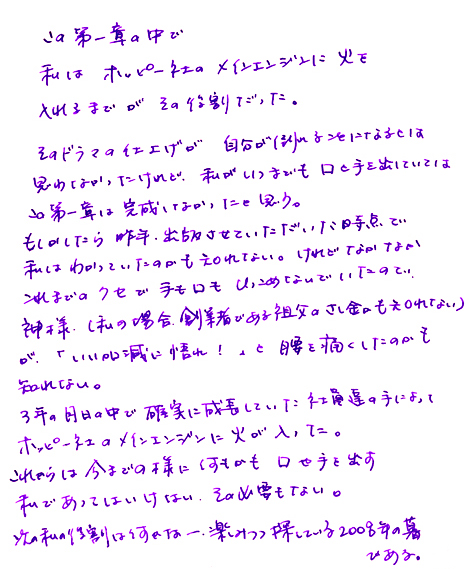 この第一章の中で
私は ホッピー社の メインエンジンに 火を
入れるまでが その役割だった。
そのドラマの仕上げが 自分が倒れることになるとは
思わなかったけれど、私がいつまでも 口と手を出していては
この第一章は完成しなかったと思う。
もしかしたら 昨年、出版させていただいた時点で
私はわかっていたのかも知れない。けれどなかなか
これまでのクセで手も口も ひっこめないでいたので、
神様（私の場合、創業者である祖父のさし金かも知れない）
が、「いい加減に悟れ！」と 腰を痛くしたのかも
知れない。
3年の月日の中で 確実に成長していた社員達の手によって
ホッピー社のメインエンジンに火が入った。
これからは今までの様に何もかも 口や手を出す
私であってはいけない、その必要もない。
次の私の役割は何かなー、楽しみつつ探している2008年の暮
である。